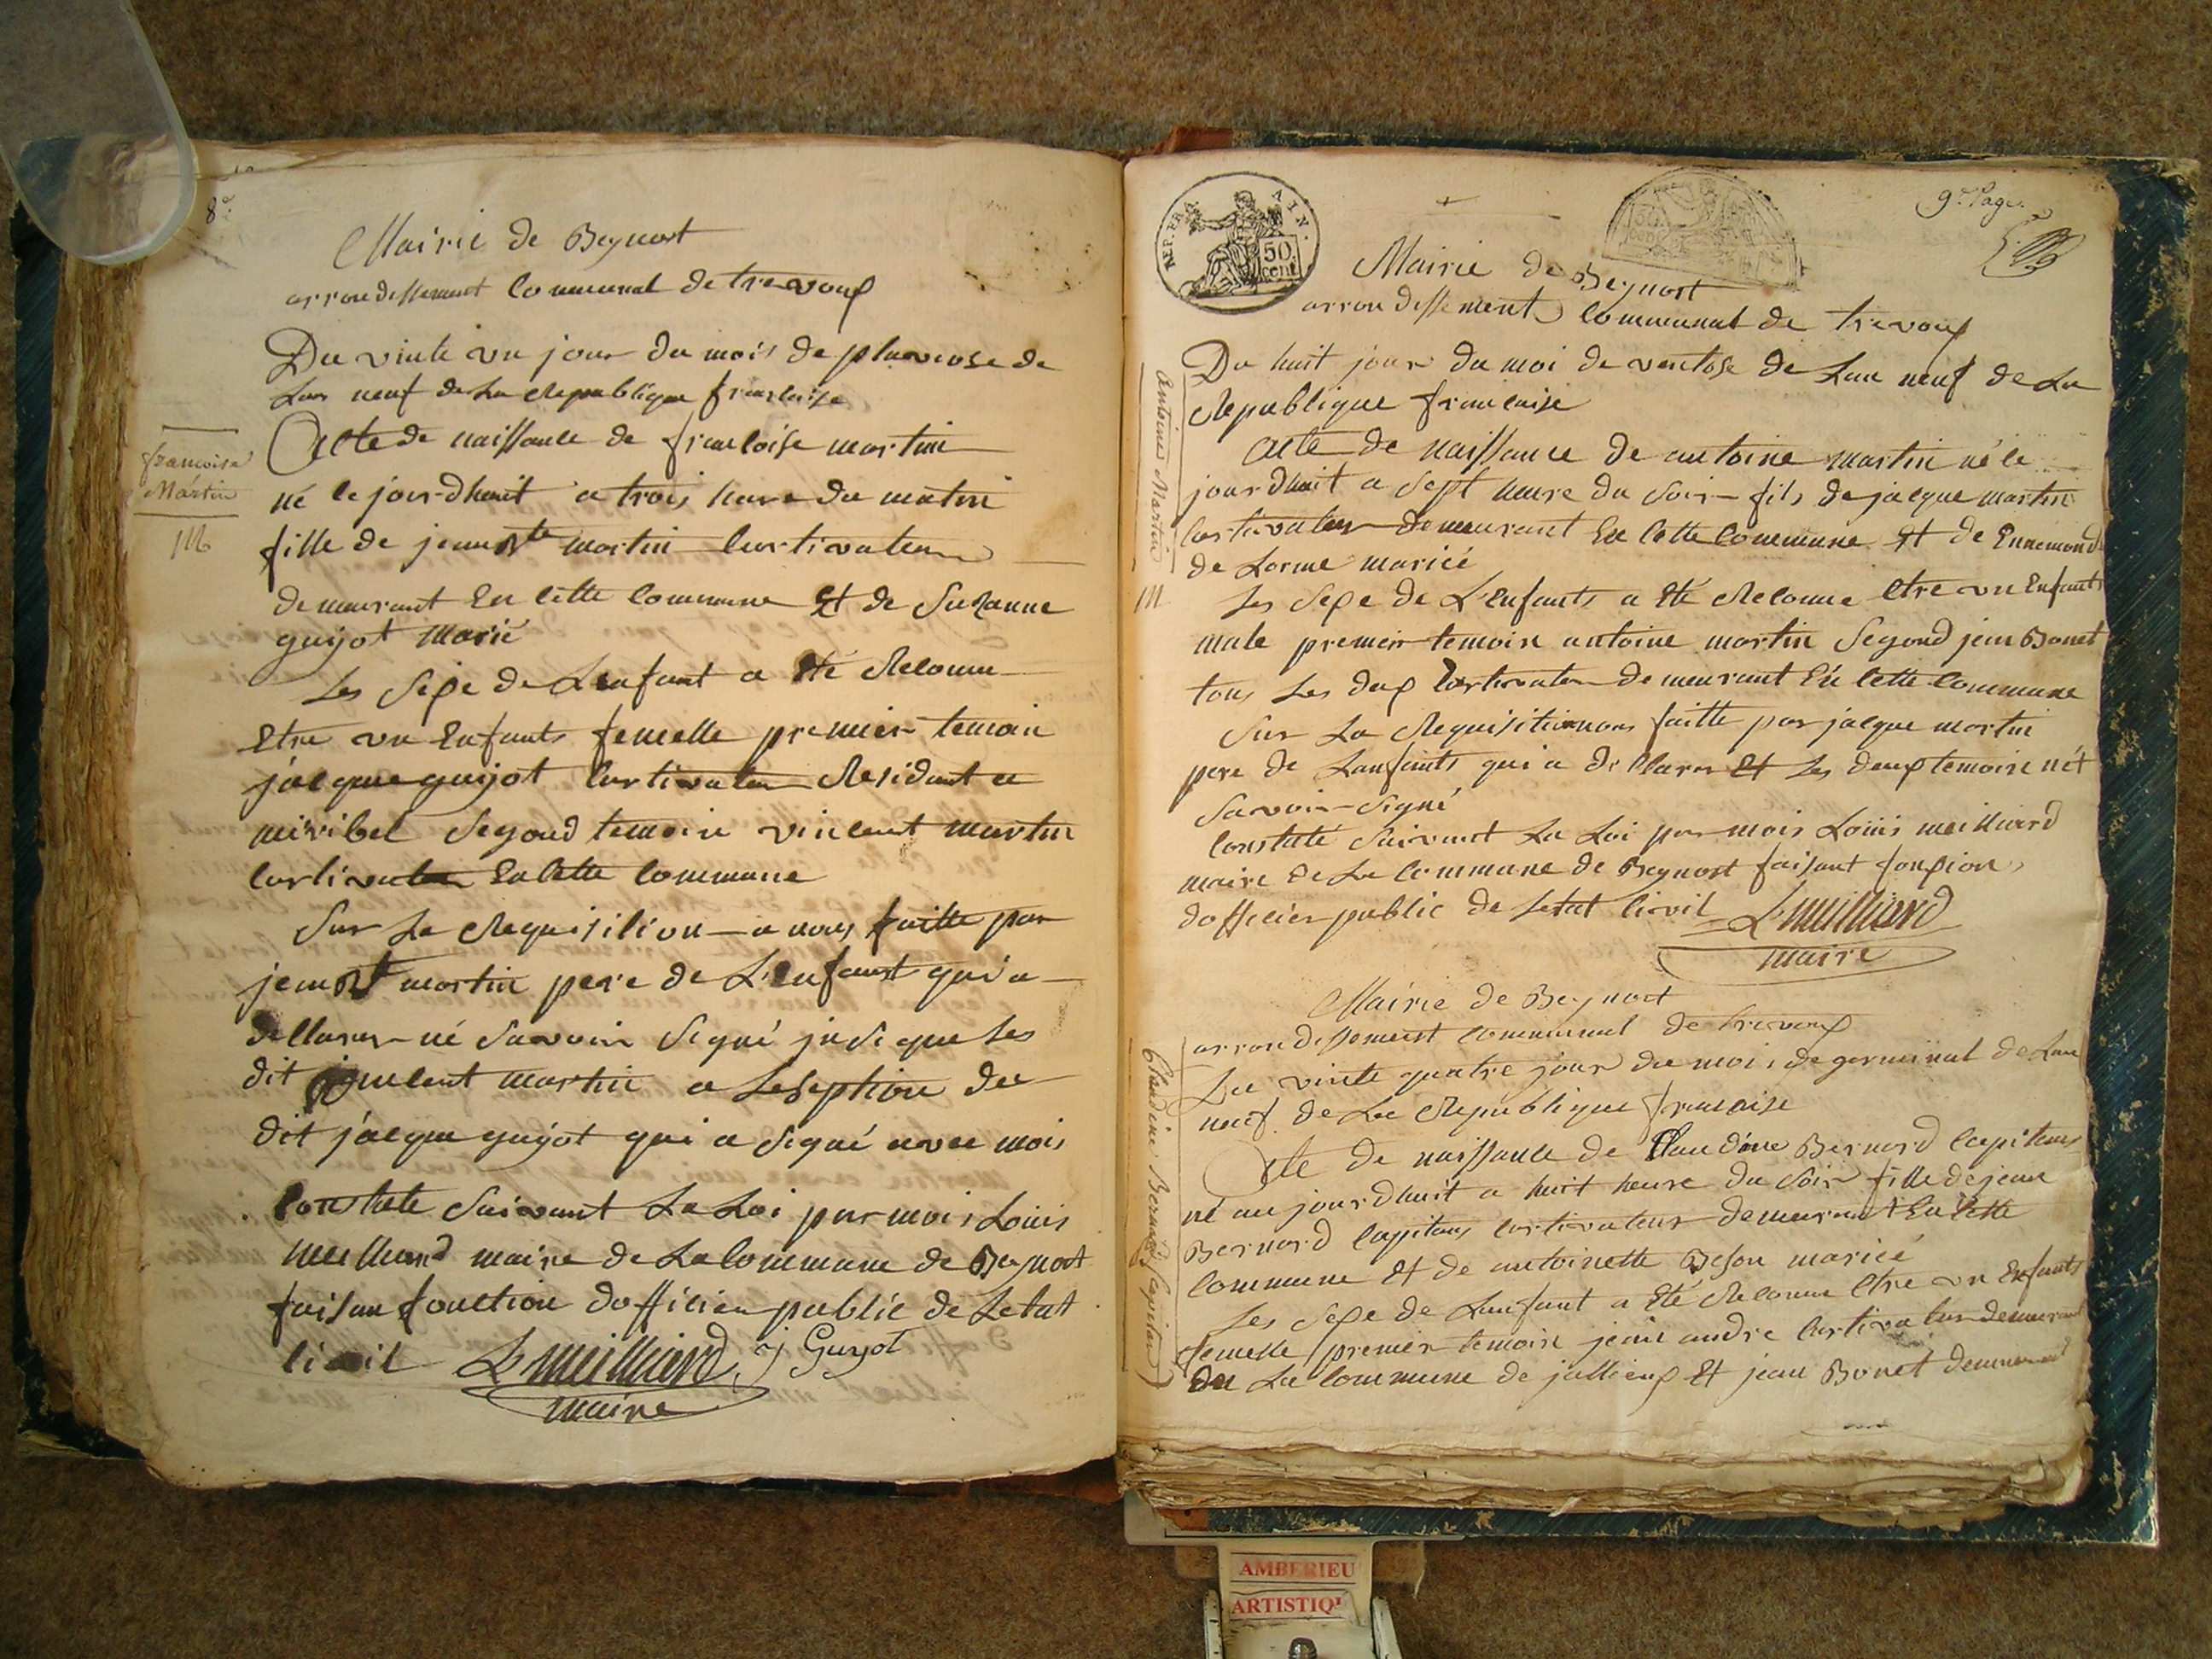 8e
Mairie de Beynost
arrondissement Communal de trevoux
Du vinte un jour du mois de pluviose de
Lan neuf de La Republique francaise
Acte de naissance de francoise martin
francoise
Martin
né le jourdhuit a trois heure du matin
fille de martin Curtivateur
demeurant En Cette Commune Et de Suzanne
guijot Marié
Les Sexe de Lenfant a Eté Reconnu
Etre un Enfants femelle premier temoin
jacque guijot Curtivateur Residant a
miribel Segond temoin vincent martin
Curtivateur En Cette Commune
Sur La Requisition a nous faitte par
martin pere de L'enfant qui a
declarer né Savoir Signé que Les
dit martin a Leseption du
dit jacque guijot qui a Signé avec mois
Constate Suivant La Loi par mois Louis
meilliard maire de La Commune de Beynost
faisan fonction dofficier public de Letat
Civil L meilliard j Guyot
maire
9e Page.
REP. FRA. AIN.
50
cent
Mairie de Beynost
arrondissement Communal de trevoux
Du huit jour du moi de ventose de Lan neuf de La
Republique francaise
Antoine Martin
Acte de naissance de antoine martin né le
jourdhuit a Sept heure du Soir fils de jacque martin
Curtivateur demeurant En Cette Commune Et de Ennemonde
de Lorme mariée
Les Sexe de L'Enfants a Eté Reconnu Etre un Enfants
male premier temoin antoine martin Segond jean Bonet
tous Les deux Curtivateur demeurant En Cette Commune
Sur La Requisition nous faitte par jacque martin
pere de Lanfants qui a declarer Et Les deux temoin nét
Savoir Signé
Constaté Suivant La Loi par mois Louis meilliard
maire de La Commune de Beynost faisant fonxion
dofficier public de Letat Civil L meilliard
maire
Mairie de Beynost
arrondissement Communal de trevoux
Du vinte quatre jour du mois de germinal de Lan
neuf de La Republique francaise
Claudine Bernard Capitan
Acte de naissance de Claudine Bernard Capitans
né au jourdhuit a huit heure du Soir fille de jean
Bernard Capitans Curtivateur demeurant En Cette
Commune Et de antoinette Beson mariée
Les Sexe de Lanfant a Eté Reconnu Etre un Enfants
femelle premier temoin jean andre Curtivateur demeurant
du La Commune de jallieux Et jean Bonet demeurant
AMBERIEU
ARTISTIQ